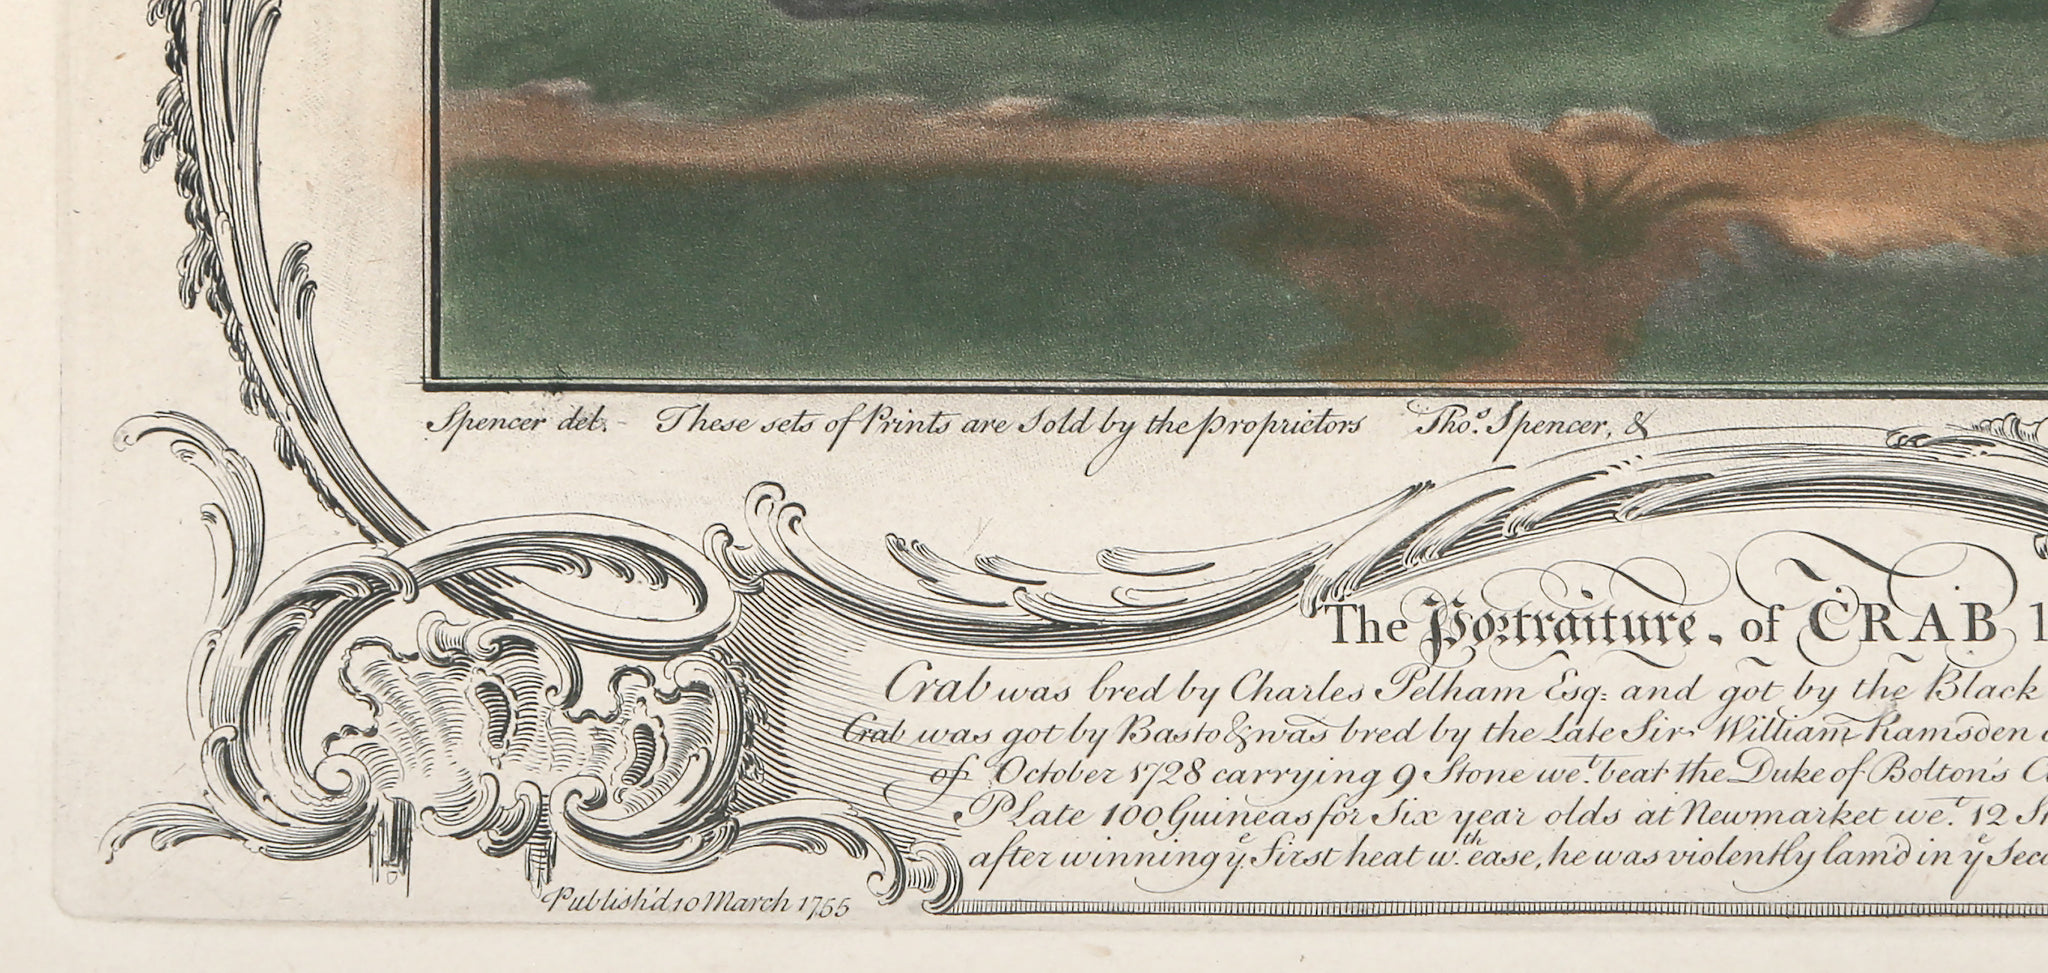 Spencer del. These sets of Prints are Sold by the Proprietors Tho.s Spencer, &
The Portraiture, of CRAB 1
Crab was bred by Charles Pelham Esq: and got by the Black
Crab was got by Basto & was bred by the Late Sir William Ramsden
of October 1728 carrying 9 Stone we.t beat the Duke of Bolton's
Plate 100 Guineas for Six year olds at Newmarket we.t 12
after winning y.e First heat w.th ease, he was violently lam'd in y.e
Publish'd 10 March 1755